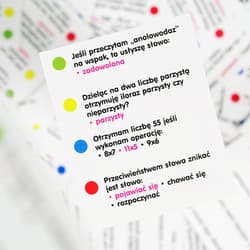 Jeśli przeczytam „anolowodaz”
na wspak, to usłyszę słowo:
• zadowolona
Dzieląc na dwa liczbę parzystą
otrzymuję iloraz parzysty czy
nieparzysty?
• parzysty
Otrzymam liczbę 55 jeśli
wykonam operację:
• 8x7 • 11x5 • 9x6
Przeciwieństwem słowa znikać
jest słowo:
• pojawiać się • chować się
• rozpocząć